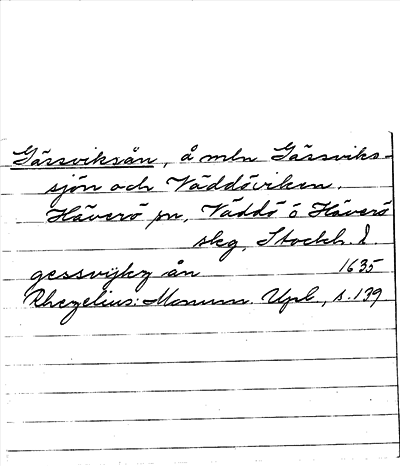 Gässviksån, å mln Gässviks-
sjön och Väddöviken.
Häverö sn, Väddö o Häverö
skg, Stockh. l.
gessvijkz ån 1635
Rhezelius: Monum. Upl., s. 139.